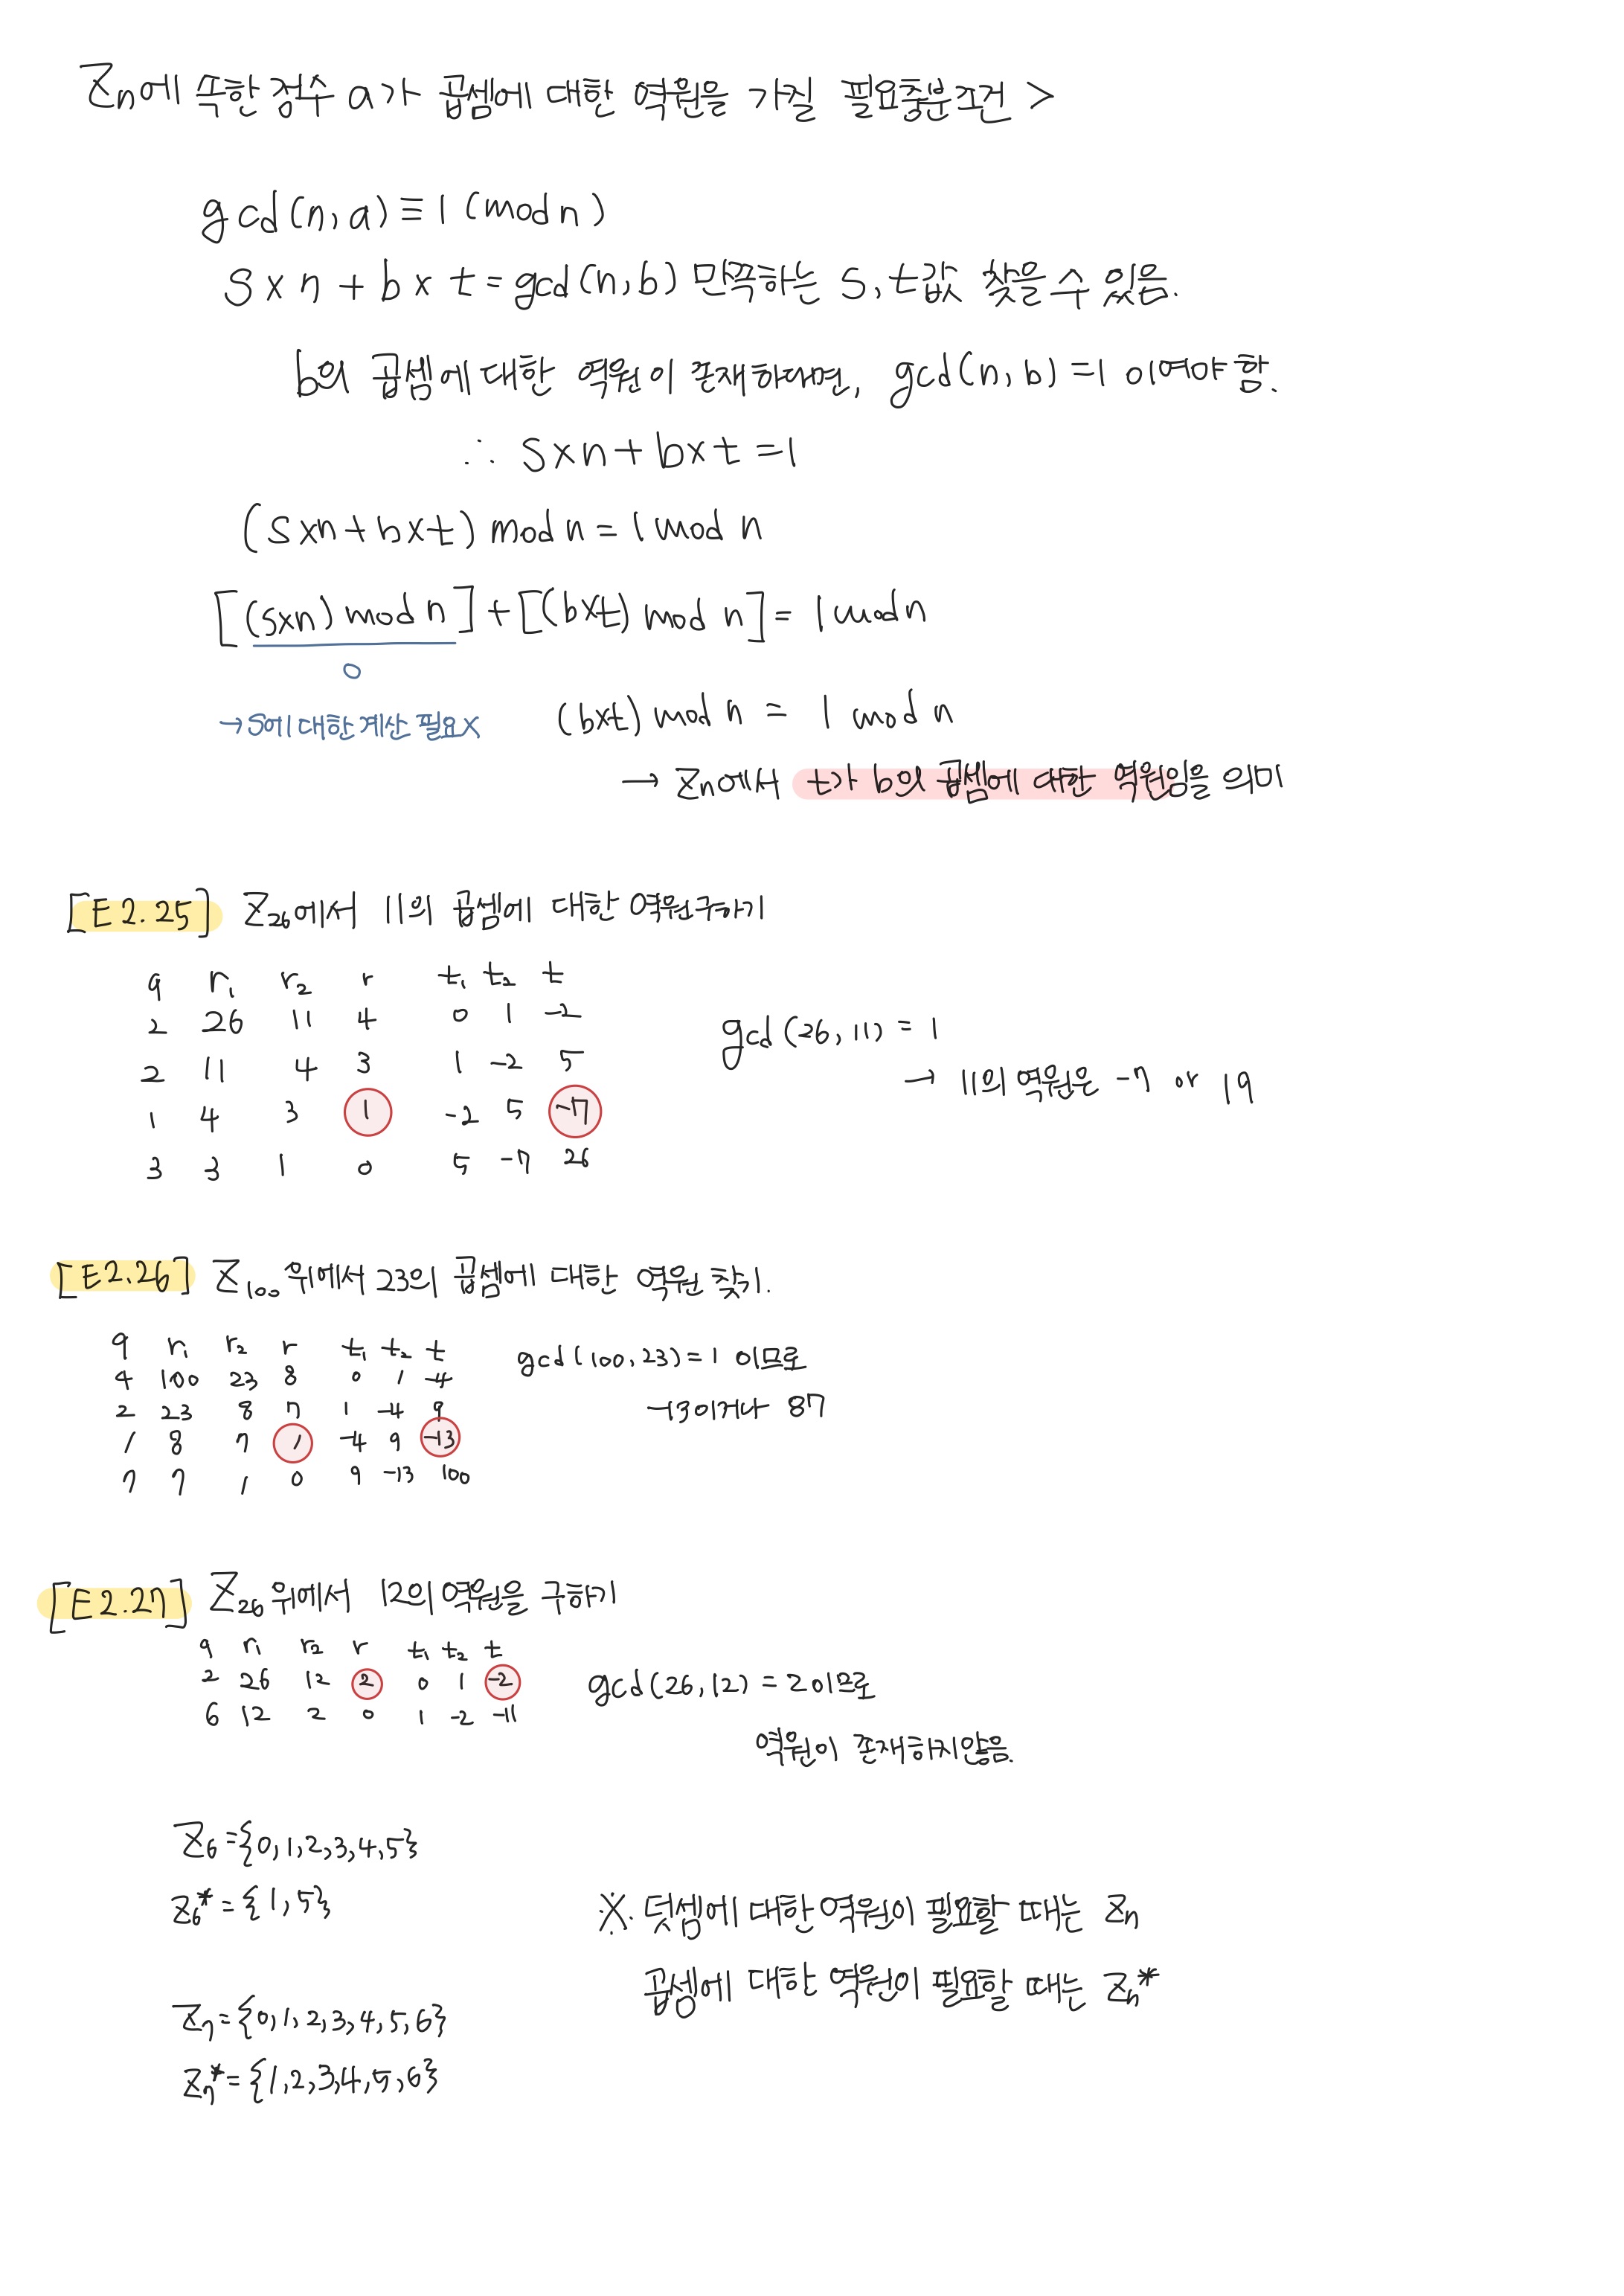 Zn에 속한 정수 a가 곱셈에 대한 역원을 가질 필요충분조건 >
gcd(n, a) ≡ 1 (mod n)
s x n + b x t = gcd(n, b) 만족하는 s, t값 찾을 수 있음.
b의 곱셈에 대한 역원이 존재하려면, gcd(n, b) = 1 이여야 함.
∴ sxn + bxt = 1
(sxn + bxt) mod n = 1 mod n
[(sxn) mod n] + [(bxt) mod n] = 1 mod n
0
→ s에 대한 계산 필요X (bxt) mod n = 1 mod n
→ Zn에서 t가 b의 곱셈에 대한 역원임을 의미
[E 2.25] Z26에서 11의 곱셈에 대한 역원구하기
q r1 r2 r t1 t2 t
2 26 11 4 0 1 -2
gcd(26, 11) = 1
2 11 4 3 1 -2 5
→ 11의 역원은 -7 or 19
1 4 3 1 -2 5 -7
3 3 1 0 5 -7 26
[E2.26] Z100위에서 23의 곱셈에 대한 역원 찾기.
q r1 r2 r t1 t2 t
gcd(100, 23) = 1 이므로
4 100 23 8 0 1 -4
2 23 8 7 1 -4 9
-13이거나 87
1 8 7 1 -4 9 -13
7 7 1 0 9 -13 100
[E2.27] Z26위에서 12의 역원을 구하기
q r1 r2 r t1 t2 t
2 26 12 2 0 1 -2
gcd(26, 12) = 2이므로
6 12 2 0 1 -2 -11
역원이 존재하지않음.
Z6 = {0, 1, 2, 3, 4, 5}
Z6* = {1, 5}
※ 덧셈에 대한 역원이 필요할 때는 Zn
곱셈에 대한 역원이 필요할 때는 Zn*
Z7 = {0, 1, 2, 3, 4, 5, 6}
Z7* = {1, 2, 3, 4, 5, 6}